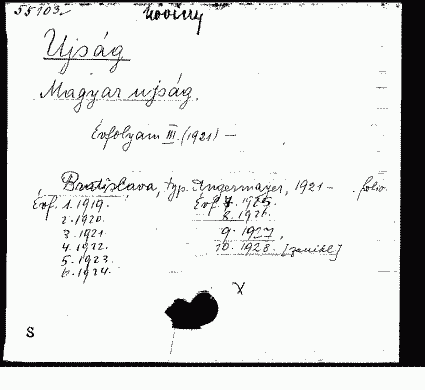 55103.
noviny
Ujság
Magyar ujság.
Évfolyam III. (1921) —
Bratislava, typ. Angermayer, 1921 — folio.
Évf. 1. 1919.
2. 1920.
3. 1921.
4. 1922.
5. 1923.
6. 1924.
Évf 7. 1925.
8. 1926.
9. 1927.
10. 1928. [zanikl]
X
S